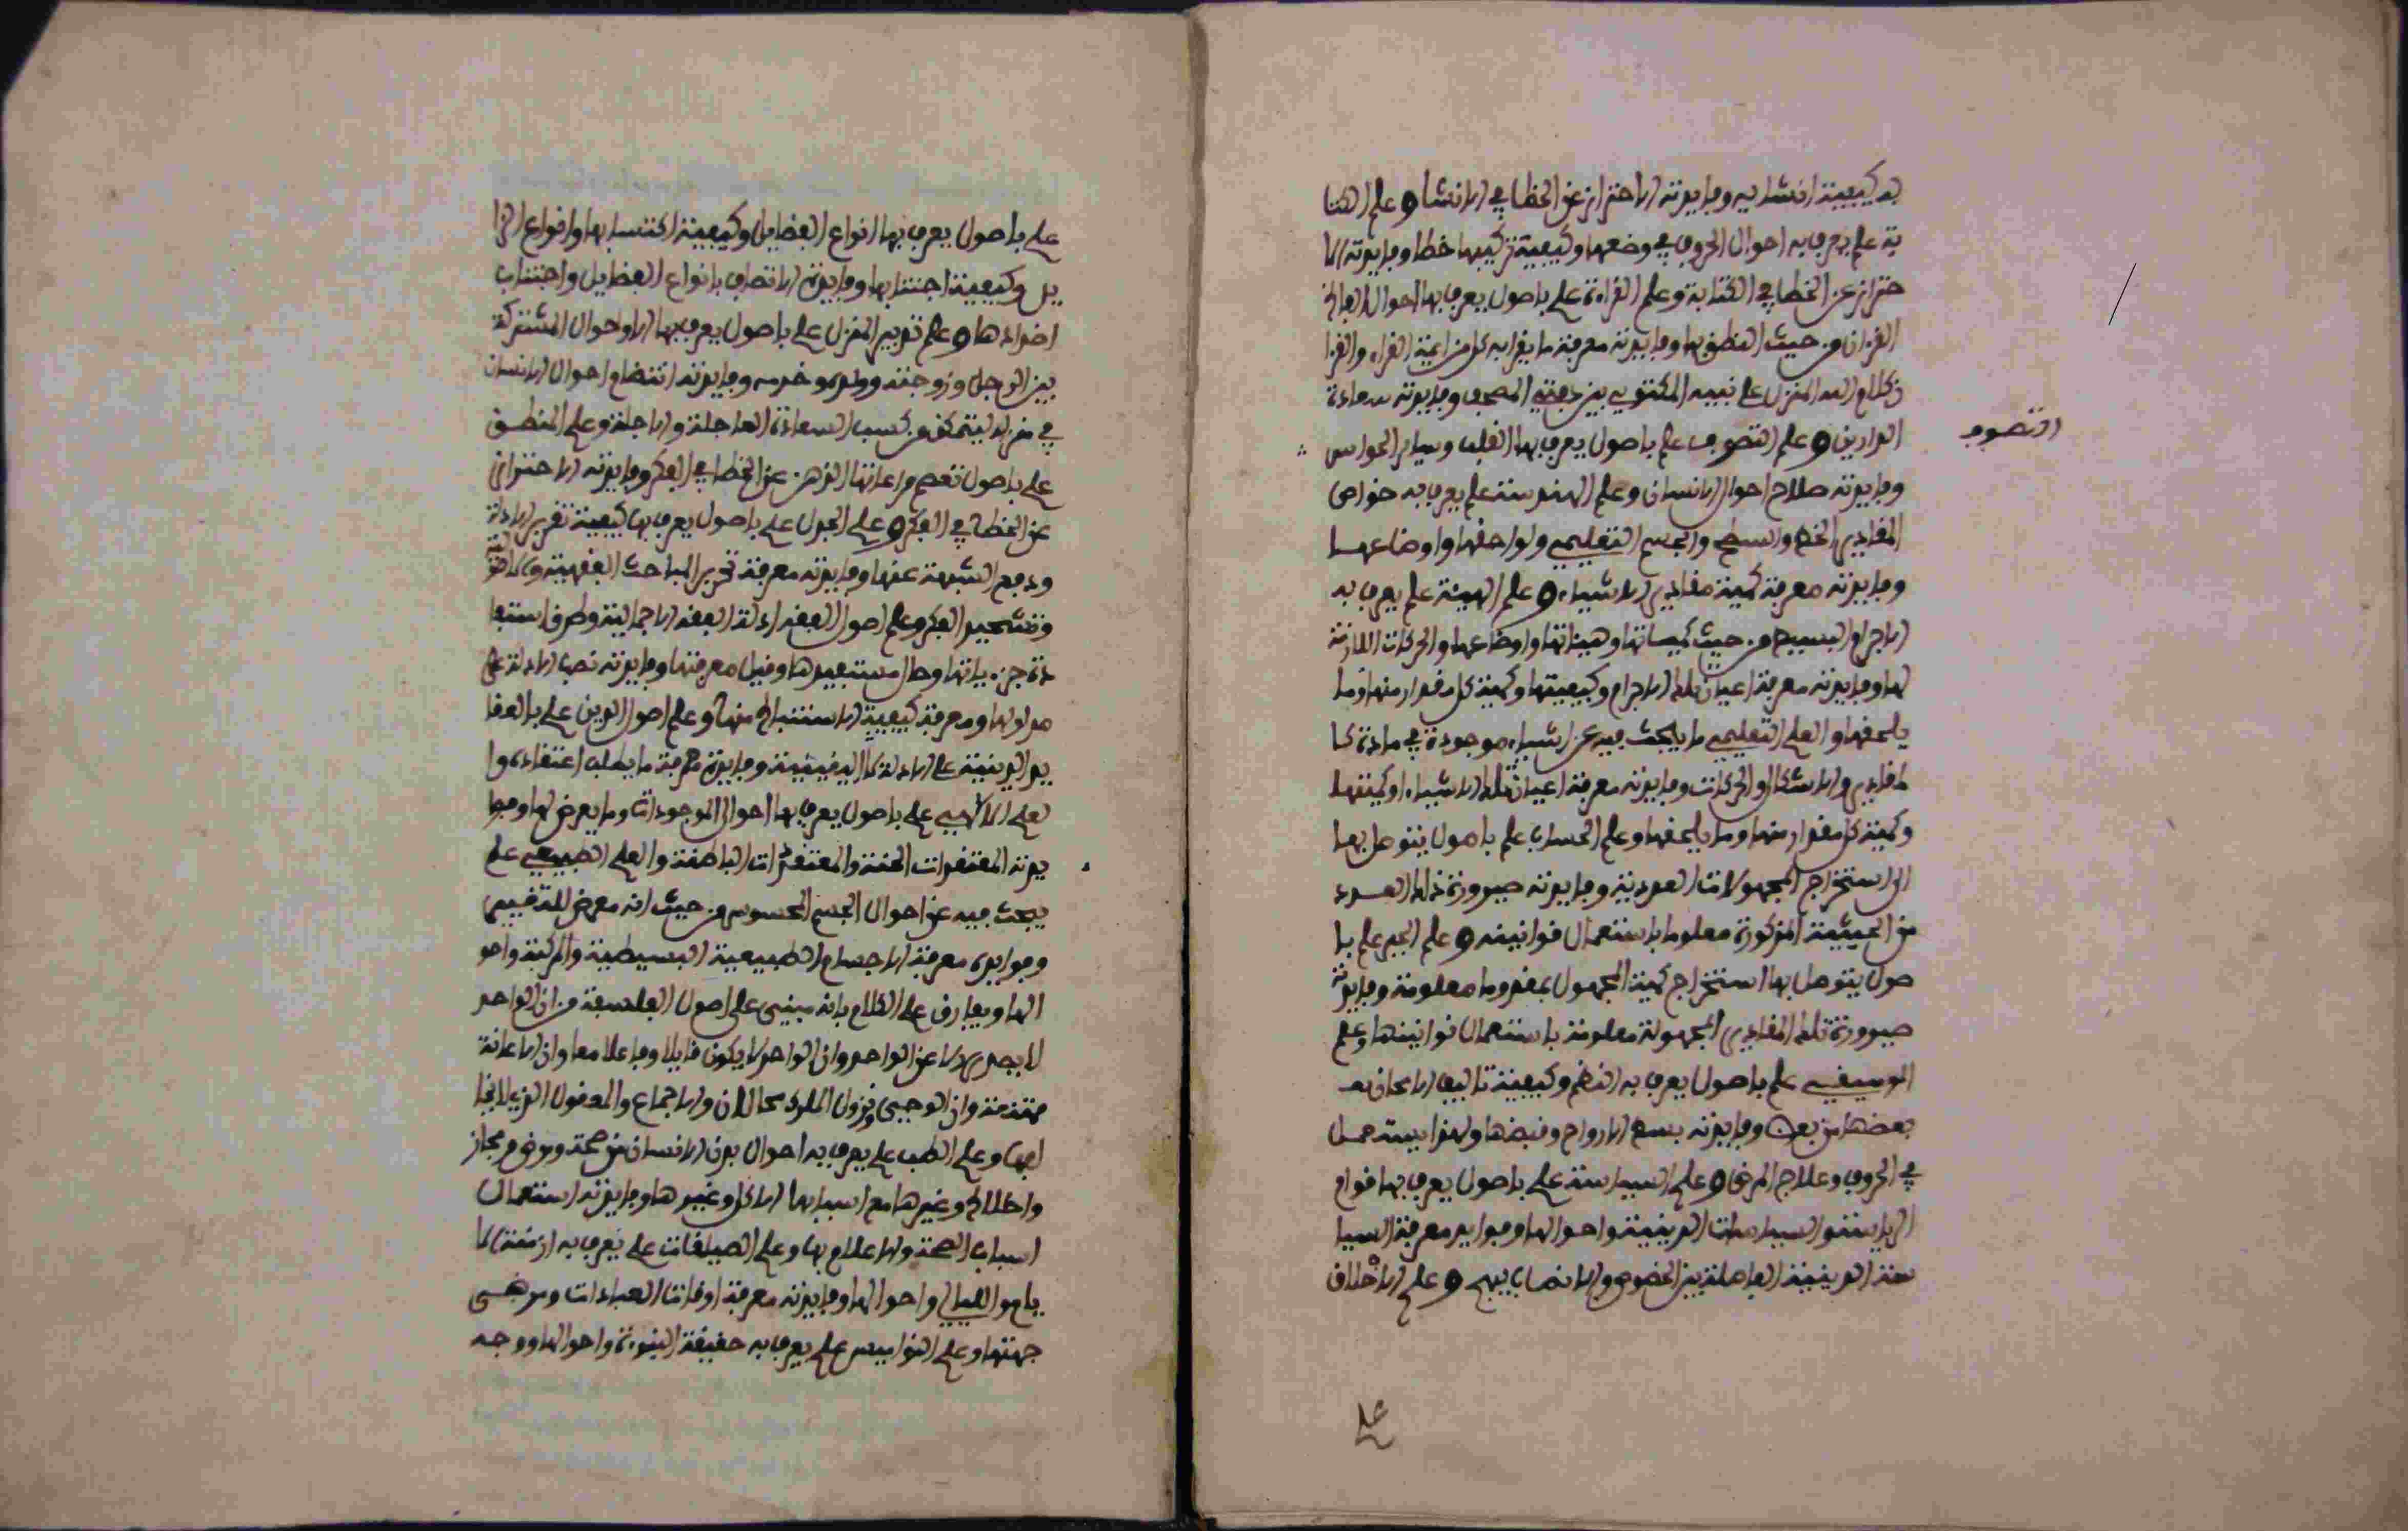 به كيفية انشايه وفايدته الاحتراز عن الخطا في الانشا وعلم الكتا
بة علم يعرف به احوال الحروف في وضعها وكيفية تركيبها خطا وفايدته الا
حتراز عن الخطا في الكتابة وعلم القراءة علم باصول يعرف بها احوال الفاظ
القران من حيث النطق بها وفايدته معرفة ما يقرا به كل من ايمة القراء والقرا
ن كلام الله المنزل على نبيه المكتوب بين دفتي المصحف وفايدته سعادة
الدارين وعلم التصوف علم باصول يعرف بها القلب وساير الحواس
التصوف
وفايدته صلاح احوال الانسان وعلم الهندسة علم يعرف به خواص
المقادير الخط والسطح والجسم التعليمي ولواحقها واوضاعها
وفايدته معرفة كمية مقادير الاشياء وعلم الهيئة علم يعرف به
الاجرام البسيط من حيث كمياتها وهيئاتها واوضاعها والحركات اللازمة
لها وفايدته معرفة اعيان تلك الاجرام وكيفيتها وكمية كل مقدار منها وما
يلحقها والعلم التعليمي ما يبحث فيه عن اشياء موجودة في مادة كا
لمقادير والاشكال والحركات وفايدته معرفة اعيان تلك الاشياء وكيفيتها
وكمية كل مقدار منها وما يلحقها وعلم الحساب علم باصول يتوصل بها
الى استخراج المجهولات العددية وفايدته صيرورة ذلك العدد
من الحيثية المذكورة معلوما باستعمال قوانينه وعلم الجبر علم با
صول يتوصل بها استخراج كمية المجهول بمفروضا معلومة وفايدته
صيرورة تلك المقادير المجهولة معلومة باستعمال قوانينها وعلم
الموسيقى علم باصول يعرف به النغم وكيفية تاليف الالحان بعـ
بعضها من بعض وفايدته بسط الارواح وقبضها ولهذا يستعمل
في الحروب وعلاج المرضى وعلم السياسة علم باصول يعرف بها انواع
الرياسة والسياسات المدنية واحوالها وفوايد معرفة السيا
سة المدنية الفاضلة بين الخصوم والانصاف بينهم وعلم الاخلاق
علم
علم باصول يعرف بها انواع الفضايل وكيفية اكتسابها وانواع الرذا
يل وكيفية اجتنابها وفايدته الاتصاف بانواع الفضايل واجتناب
اضدادها وعلم تدبير المنزل علم باصول يعرف بها الاحوال المشتركة
بين الرجل وزوجته وولده وخدمه وفايدته انتظام احوال الانسان
في منزله ليتمكن من كسب السعادة العاجلة والاجلة وعلم المنطق
علم باصول تعصم مراعاتها الذهن عن الخطا في الفكر وفايدته الاحتراز
عن الخطا في الفكر وعلم الجدل علم باصول يعرف بها كيفية تقرير الادلة
ودفع الشبهة عنها وفايدته معرفة تحرير المباحث الفقهية والاصولية
وتشحيذ الفكر وعلم اصول الفقه ادلة الفقه الاجمالية وطرق استفا
دة جزءياتها وحال مستفيدها وقيل معرفتها وفايدته نصب الادلة على
مدلولها ومعرفة كيفية الاستنباط منها وعلم اصول الدين علم بالعقا
يد الدينية على الادلة اليقينية وفايدته معرفة ما يطلب اعتقاده وا
لعلم الالاهي علم باصول يعرف بها احوال الموجودات وما يعرض لها وفا
يدته المعتقدات الحقة والمعتقدات الباطلة والعلم الطبيعي علم
يبحث فيه عن احوال الجسم المحسوس من حيث انه معرض للتغيير
وفوايده معرفة الاجسام الطبيعية البسيطة والمركبة واحو
الها ويفارق علم الكلام بانه مبني على اصول الفلسفة من ان الواحد
لا يصدر الا عن الواحد وان الواحد لا يكون قابلا وفاعلا معا وان الاعادة
ممتنعة وان الوحي ونزول الملك محالان والاجماع والمعقول الذي لا يخا
لفها وعلم الطب علم يعرف به احوال بدن الانسان من صحة ومرض ومجاز
واخلاط وغيرها مع اسبابها الاكل وغيرها وفايدته استعمال
اسباب الصحة والاعلام بها وعلم الميقات علم يعرف به ازمنة الا
يام والليالي واحوالها وفايدته معرفة اوقات العبادات ومرضى
جهتها وعلم النواميس علم يعرف به حقيقة النبوءة واحوالها ووجه